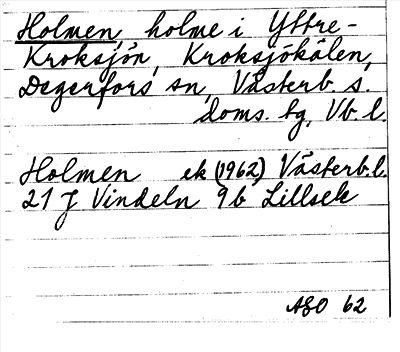 Holmen, holme i Yttre-
Kroksjön, Kroksjökälen,
Degerfors sn, Västerb. s.
doms. bg, Vb. l.
Holmen ek (1962) Västerb. l.
21 J Vindeln 9b Lillsele
ASO 62